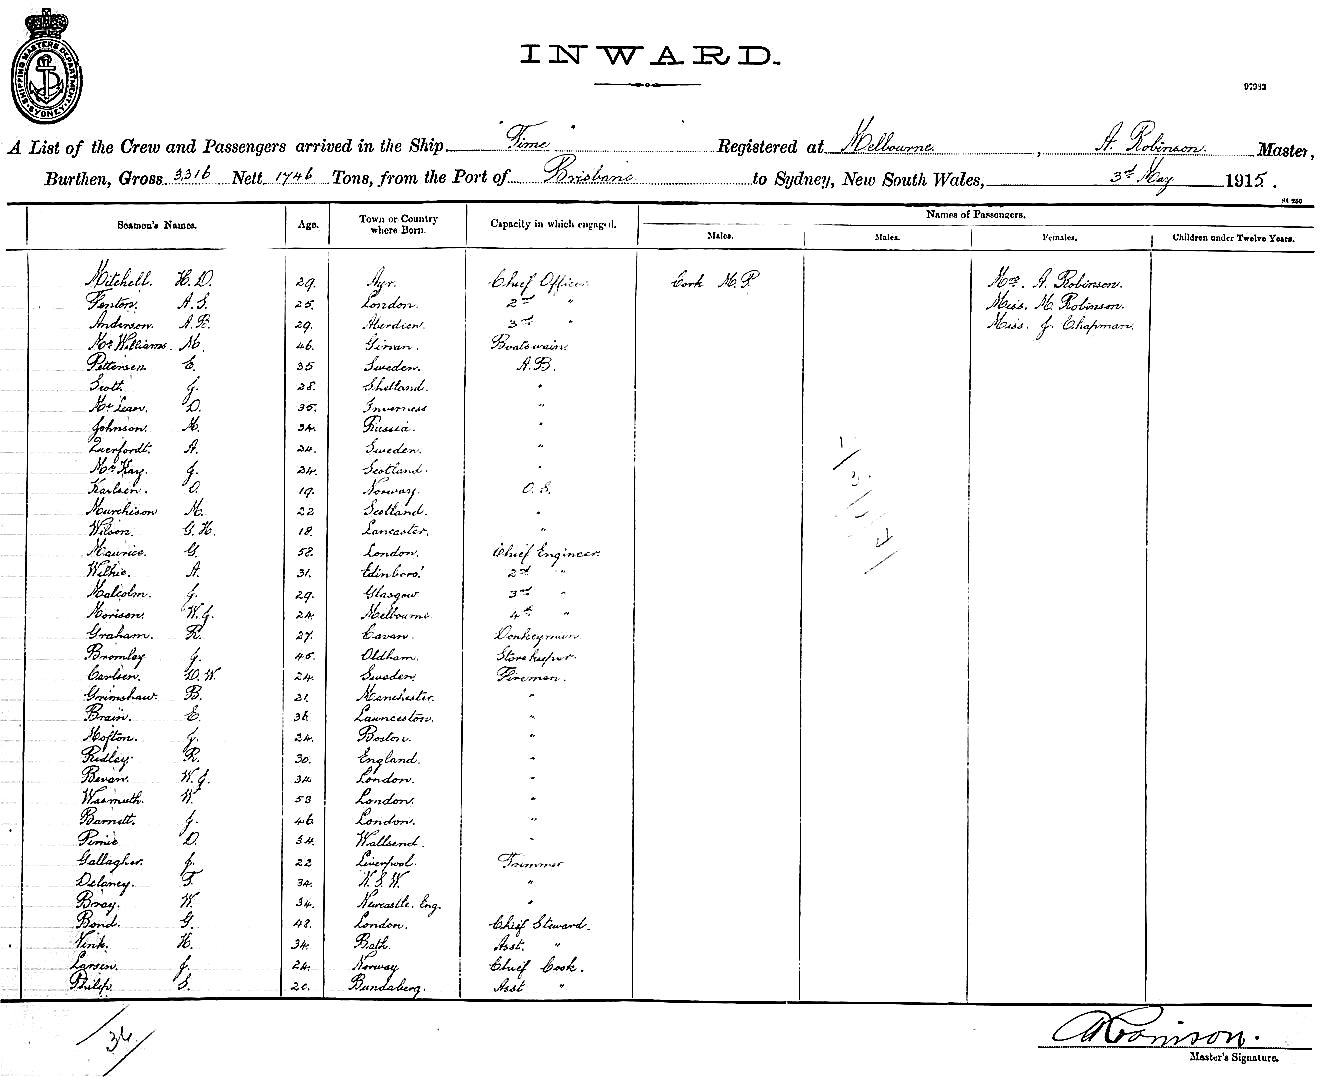 SHIPPING MASTERS DEPARTMENT SYDNEY
INWARD.
A List of the Crew and Passengers arrived in the Ship "Time" Registered at Melbourne, A. Robinson. Master,
Burthen, Gross 3316 Nett 1746 Tons, from the Port of Brisbane to Sydney, New South Wales, 3rd May 1915.
Names of Passengers.
Seamen's Names. Age. Town or Country where Born. Capacity in which engaged. Males. Males. Females. Children under Twelve Years.
Mitchell. H.D. 29. Ayr. Chief Officer York M.P. Mrs. A. Robinson.
Fenton. A.S. 25. London. 2nd " Miss. M. Robinson.
Anderson. A.B. 29. Aberdeen. 3rd " Miss. J. Chapman.
McWilliams. M. 46. Girvan. Boatswain.
Pettersen. E. 35 Sweden. A.B.
Scott. J. 28. Shetland. "
McLean. D. 35. Inverness "
Johnson. M. 34. Russia. "
A. 24. Sweden. "
McKay. J. 24. Scotland. "
Karlsen. O. 19. Norway. O.S.
Murchison M. 22 Scotland. "
Wilson. G.H. 18. Lancaster. "
Maurice. G. 58. London. Chief Engineer.
Wilkie. A. 31. Edinboro' 2nd "
Malcolm. J. 29. Glasgow 3rd "
Morison. W.J. 24. Melbourne 4th "
Graham. R. 27. Cavan. Donkeyman
Bromley J. 45. Oldham. Storekeeper.
Carlsen. W. 24 Sweden. Fireman.
Grimshaw. B. 21. Manchester. "
Brain. E. 36. Launceston. "
J. 24. Boston. "
Ridley. R. 30. England. "
Bevan. W.J. 34. London. "
Wasmuth. W. 53 London. "
Barnett. J. 46 London. "
Pirrie D. 34. Wallsend. "
Gallagher. J. 22 Liverpool. Trimmer
Delaney. T. 34. N.S.W. "
Bray. W. 34. Newcastle. Eng. "
Bond. G. 48. London. Chief Steward.
Vink. H. 34. Bath. Asst. "
Larsen. J. 24. Norway Chief Cook.
Philip S. 20. Bundaberg. Asst "
A Robinson.
Master's Signature.